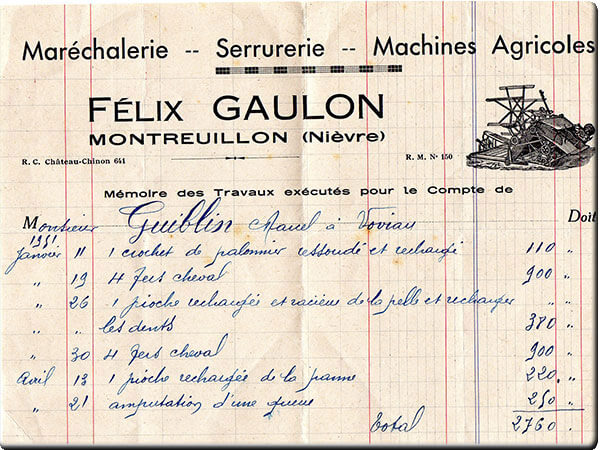 Maréchalerie -- Serrurerie -- Machines Agricoles
FÉLIX GAULON
MONTREUILLON (Nièvre)
R. C. Château-Chinon 641
R. M. Nº 150
Mémoire des Travaux exécutés pour le Compte de
Monsieur Guiblin à Doit
1951
Janvier 11 1 crochet de palonnier ressoudé et rechargé 110 "
" 19 4 fers cheval 900 "
" 26 1 pioche rechargée et de la pelle et recharger "
" " les dents 380 "
" 30 4 fers cheval 900 "
Avril 13 1 pioche rechargée de la panne 220 "
" 21 amputation d'une queue 250 "
Total 2760 "